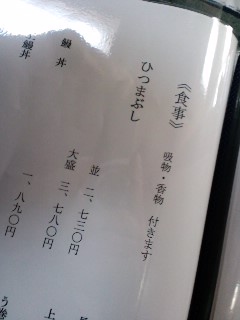 《食事》
吸物・香物 付きます
ひつまぶし
並 二、七三〇円
大盛 三、七八〇円
鰻丼
一、八九〇円
上鰻丼
う巻
上